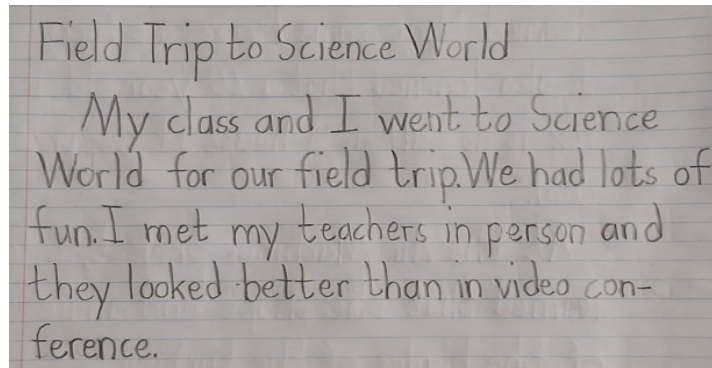 Field Trip to Science World
My class and I went to Science
World for our field trip. We had lots of
fun. I met my teachers in person and
they looked better than in video con-
ference.